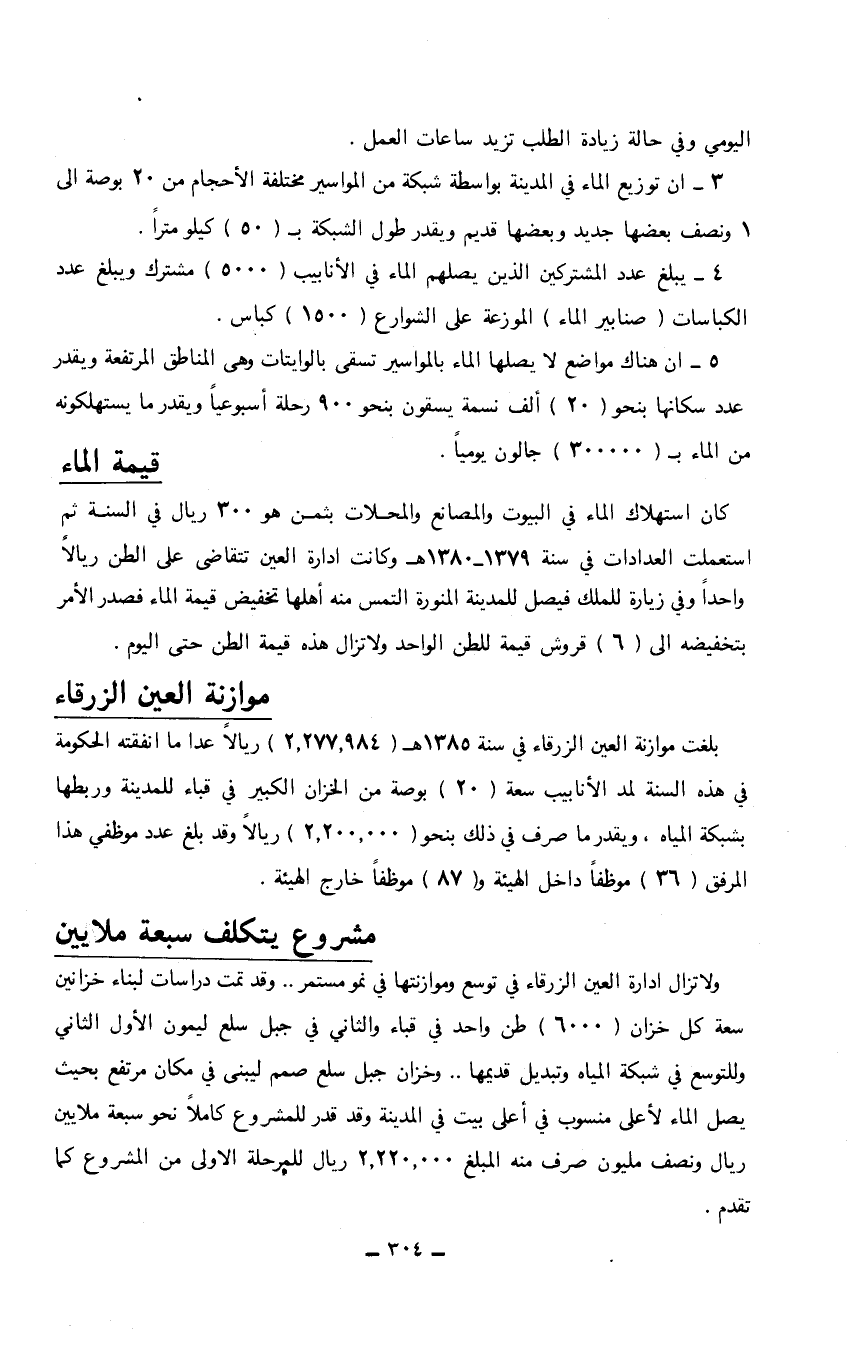 اليومي وفي حالة زيادة الطلب تزيد ساعات العمل .
٣ ـ ان توزيع الماء في المدينة بواسطة شبكة من المواسير مختلفة الأحجام من ٢٠ بوصة الى
١ ونصف بعضها جديد وبعضها قديم ويقدر طول الشبكة بـ ( ٥٠ ) كيلو متراً .
٤ ـ يبلغ عدد المشتركين الذين يصلهم الماء في الأنابيب ( ٥٠٠٠ ) مشترك ويبلغ عدد
الكباسات ( صنابير الماء ) الموزعة على الشوارع ( ١٥٠٠ ) كباس .
٥ ـ ان هناك مواضع لا يصلها الماء بالمواسير تسقى بالوايتات وهى المناطق المرتفعة ويقدر
عدد سكانها بنحو ( ٢٠ ) ألف نسمة يسقون بنحو ٩٠٠ رحلة أسبوعياً ويقدر ما يستهلكونه
من الماء بـ ( ٣٠٠٠٠٠ ) جالون يومياً .
قيمة الماء
كان استهلاك الماء في البيوت والمصانع والمحلات بثمن هو ٣٠٠ ريال في السنة ثم
استعملت العدادات في سنة ١٣٧٩ـ١٣٨٠هـ وكانت ادارة العين تتقاضى على الطن ريالاً
واحداً وفي زيارة للملك فيصل للمدينة المنورة التمس منه أهلها تخفيض قيمة الماء فصدر الأمر
بتخفيضه الى ( ٦ ) قروش قيمة للطن الواحد ولاتزال هذه قيمة الطن حتى اليوم .
موازنة العين الزرقاء
بلغت موازنة العين الزرقاء في سنة ١٣٨٥هـ ( ٢,٢٧٧,٩٨٤ ) ريالاً عدا ما انفقته الحكومة
في هذه السنة لمد الأنابيب سعة ( ٢٠ ) بوصة من الخزان الكبير في قباء للمدينة وربطها
بشبكة المياه ، ويقدر ما صرف في ذلك بنحو ( ٢,٢٠٠,٠٠٠ ) ريالاً وقد بلغ عدد موظفي هذا
المرفق ( ٣٦ ) موظفاً داخل الهيئة و( ٨٧ ) موظفاً خارج الهيئة .
مشروع يتكلف سبعة ملايين
ولاتزال ادارة العين الزرقاء في توسع وموازنتها في نمو مستمر .. وقد تمت دراسات لبناء خزانين
سعة كل خزان ( ٦٠٠٠ ) طن واحد في قباء والثاني في جبل سلع ليمون الأول الثاني
وللتوسع في شبكة المياه وتبديل قديمها .. وخزان جبل سلع صمم ليبنى في مكان مرتفع بحيث
يصل الماء لأعلى منسوب في أعلى بيت في المدينة وقد قدر للمشروع كاملاً نحو سبعة ملايين
ريال ونصف مليون صرف منه المبلغ ٢,٢٢٠,٠٠٠ ريال للمرحلة الاولى من المشروع كما
تقدم .
ـ ٣٠٤ ـ